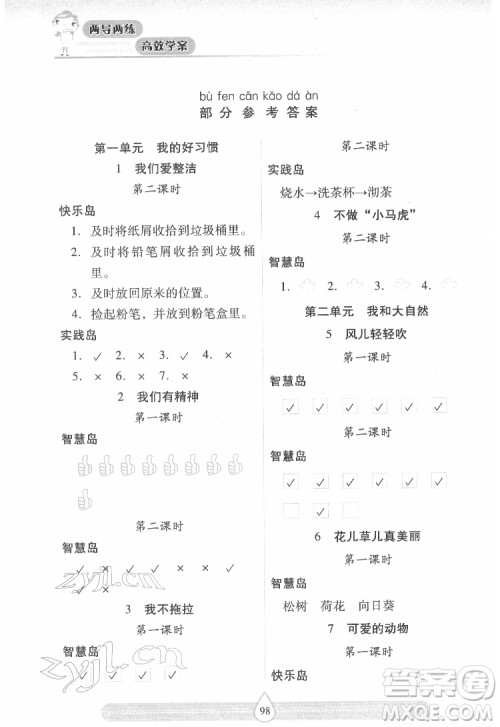 两导两练
高效学案
bù fen cān kǎo dá àn
部分参考答案
第一单元 我的好习惯
1 我们爱整洁
第二课时
快乐岛
1. 及时将纸屑收拾到垃圾桶里。
2. 及时将铅笔屑收拾到垃圾桶
里。
3. 及时放回原来的位置。
4. 捡起粉笔，放到粉笔盒里。
实践岛
1. ✓ 2. × 3. × 4. ×
5. × 6. × 7. ✓ 8. ×
2 我们有精神
第一课时
智慧岛
第二课时
智慧岛
✓ × × × × ✓ ✓
✓
3 我不拖拉
第一课时
智慧岛
✓ ✓
第二课时
实践岛
烧水→洗茶杯→沏茶
4 不做“小马虎”
第二课时
智慧岛
1. 2. ✓ 3. ✓ 4. ✓
第二单元 我和大自然
5 风儿轻轻吹
第一课时
智慧岛
✓ ✓ ✓ ✓ ✓ ✓
第二课时
智慧岛
✓ ✓ ✓ ✓ ✓ ✓
✓
6 花儿草儿真美丽
第一课时
智慧岛
松树 荷花 向日葵
7 可爱的动物
第一课时
快乐岛
98
zyjl.cn
zyjl.cn
答案圈
MXQE.COM